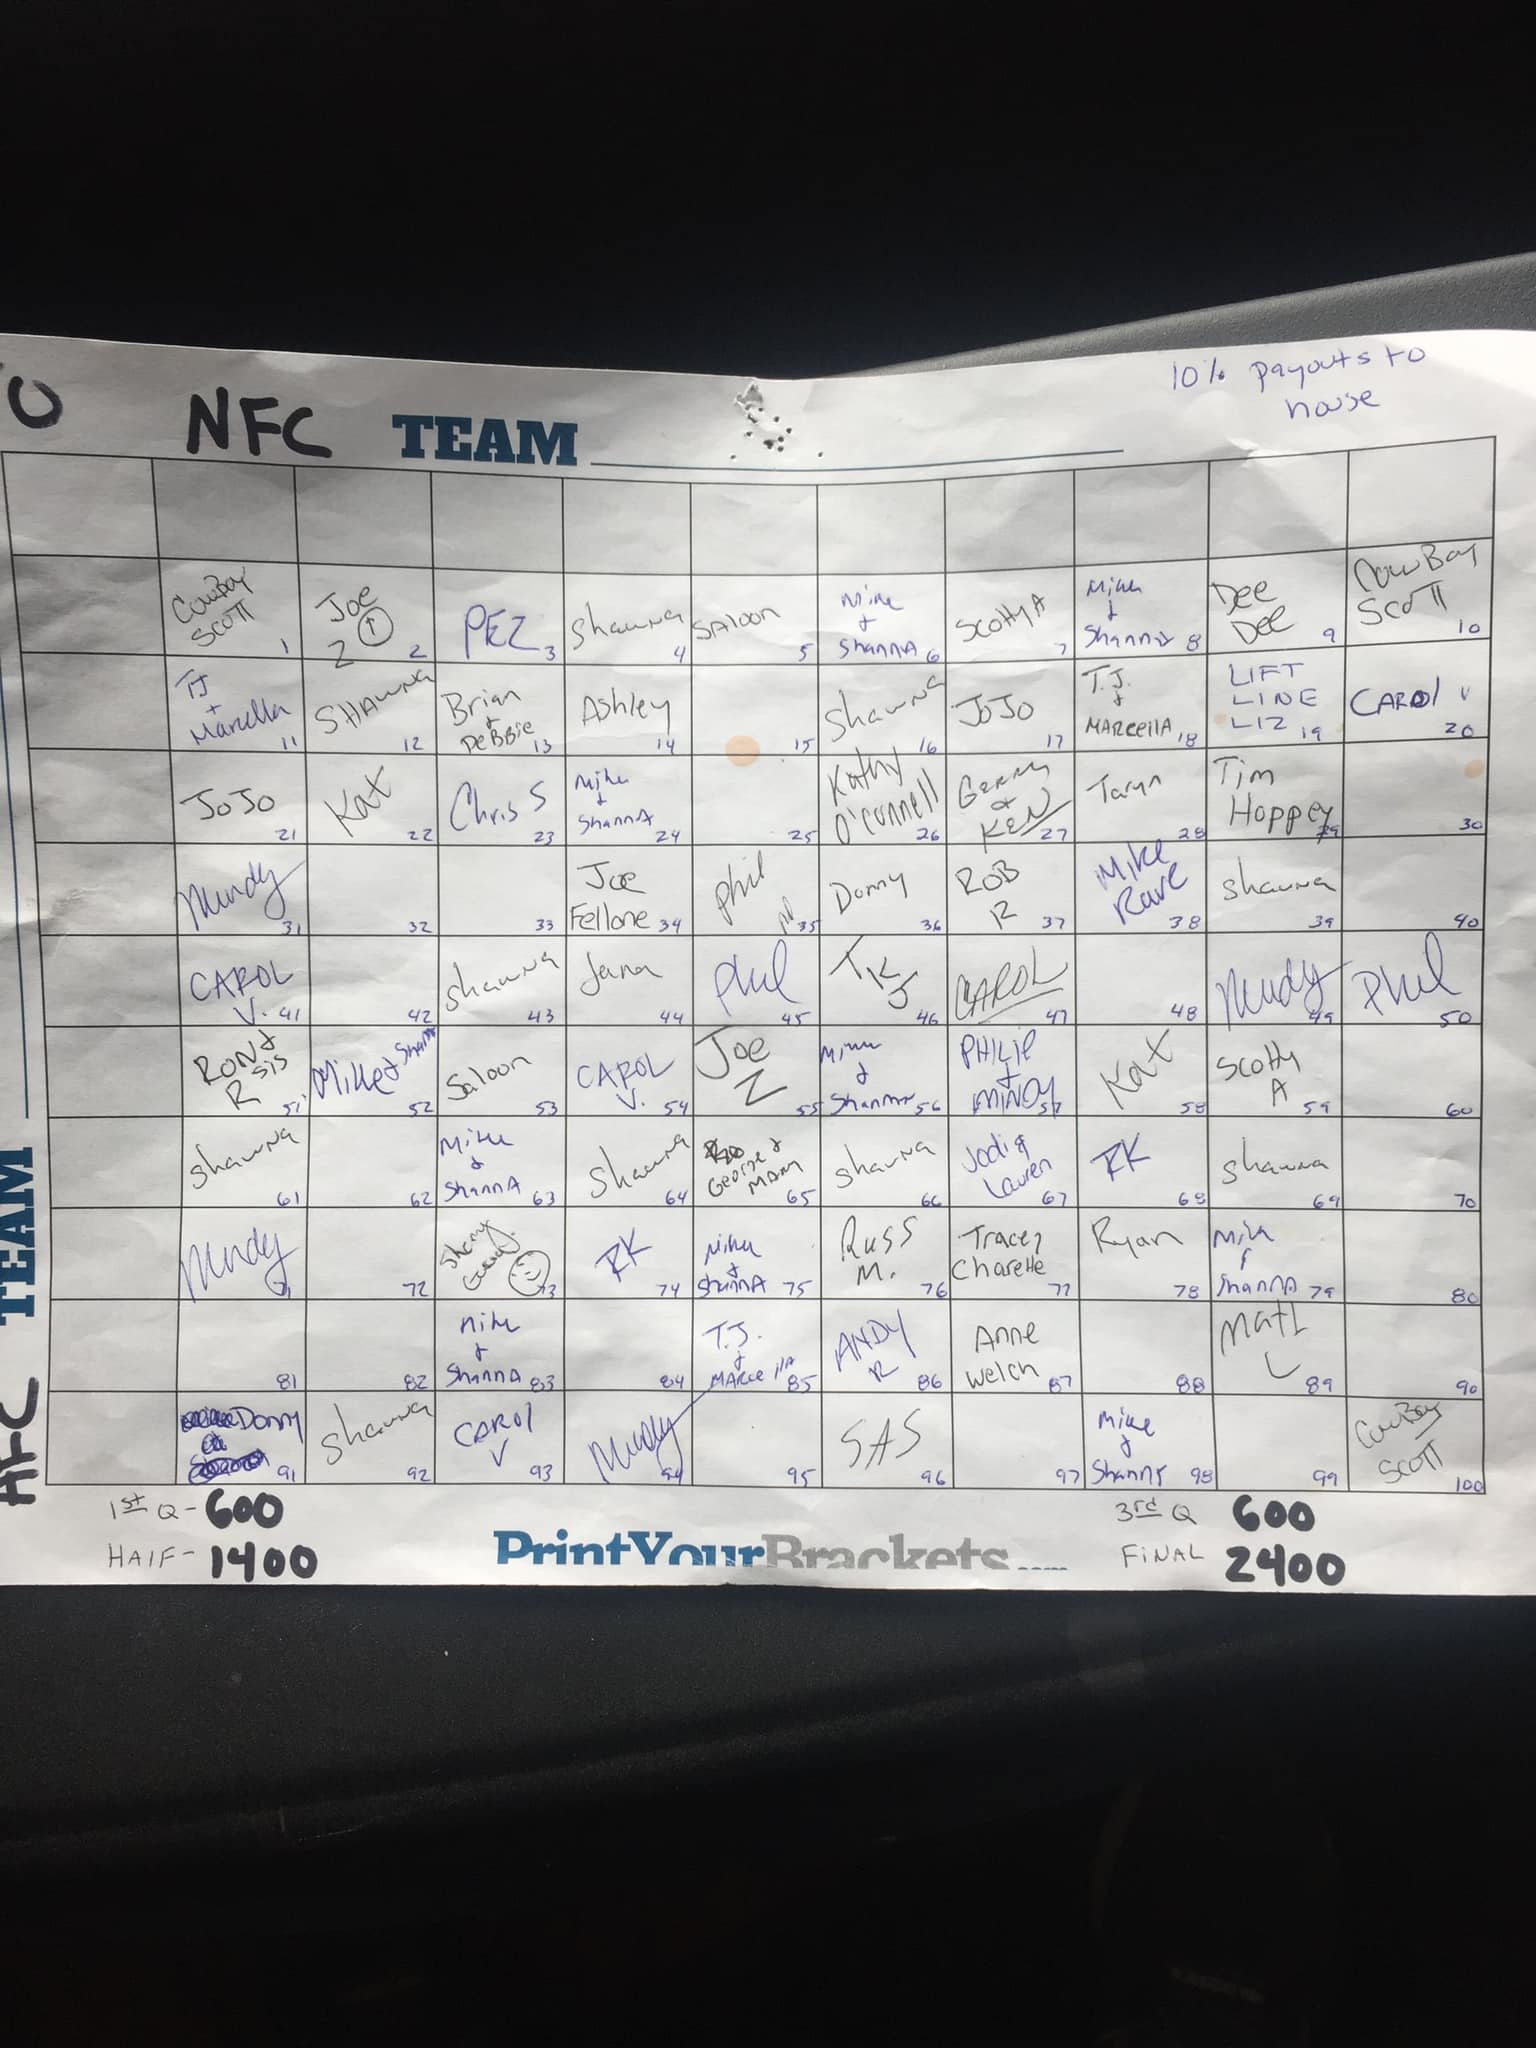 10% payouts to
house
NFC TEAM
CowBoy Scott 1 Joe Z 2 PEZ 3 Shawna 4 SALOON 5 Mike & ShannA 6 Scotty A 7 Mike & Shanna 8 Dee Dee 9 CowBoy Scott 10
TJ + Marcella 11 SHAWNA 12 Brian & DeBBie 13 Ashley 14 15 Shawna 16 JoJo 17 T.J. & MARCEllA 18 LIFT LINE LIZ 19 CAROl V 20
JoJo 21 Kat 22 Chris S 23 Mike & ShannA 24 25 Kathy O'Connell 26 Gerry & KEN 27 Taryn 28 Tim Hoppey 29 30
Mindy 31 32 33 Joe Fellone 34 phil 35 Donny 36 ROB R 37 Mike Rave 38 Shawna 39 40
CAROL V. 41 42 Shawna 43 Jana 44 Phil 45 TKJ 46 CAROL 47 48 Mindy 49 Phil 50
RON & SIS R 51 Mike & Shanna 52 Saloon 53 CAROL V. 54 Joe Z 55 Mike & Shanna 56 PHILIP & MINDY 57 Kat 58 Scotty A 59 60
Shawna 61 62 Mike & ShannA 63 Shawna 64 George & MDM 65 Shawna 66 Jodi & Lauren 67 RK 68 Shawna 69 70
Mindy 72 73 RK 74 Mike & ShannA 75 Russ M. 76 Tracey Charette 77 Ryan 78 Mike & ShannA 79 80
81 82 Mike & ShannA 83 84 T.J. & MARCEllA 85 ANDY R 86 Anne Welch 87 88 Matt L 89 90
Donny 91 Shawna 92 CAROl V 93 Mindy 94 95 SAS 96 97 Mike & Shanna 98 99 CowBoy Scott 100
AFC TEAM
1st Q - 600
HAlF - 1400
PrintYourBrackets.com
3rd Q 600
FINAL 2400